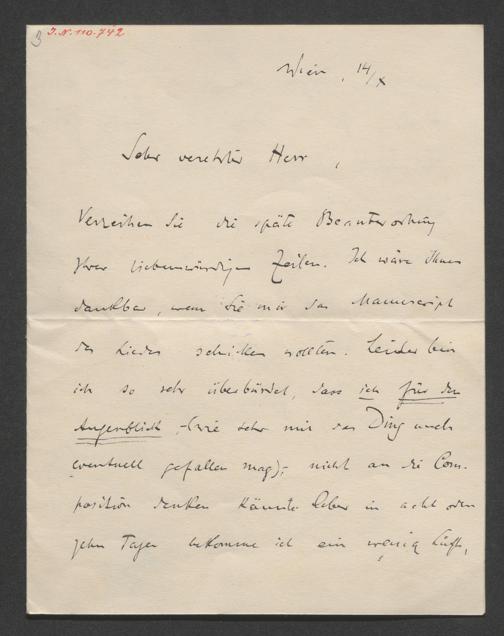 3 I.N. 110.742
Wien, 14/X
Sehr verehrter Herr,
Verzeihen Sie die späte Beantwortung
Ihrer liebenswürdigen Zeilen. Ich wäre Ihnen
dankbar, wenn Sie mir das Manuscript
des Liedes schicken wollten. Leider bin
ich so sehr überbürdet, dass ich für den
Augenblick, (wie sehr mir das Ding auch
eventuell gefallen mag), nicht an die Com-
position denken könnte. Aber in acht oder
zehn Tagen bekomme ich ein wenig Luft,